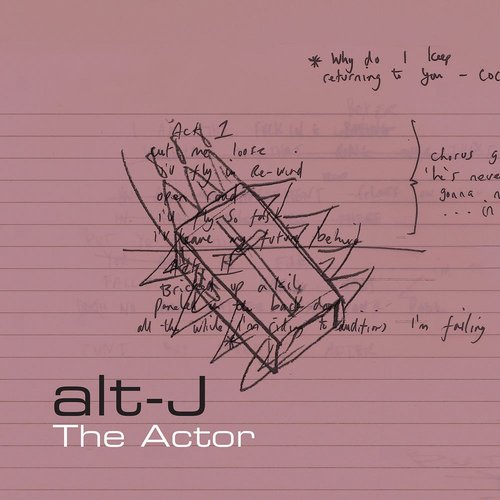 * Why do I keep
returning to you - coc
Act 1
cut me loose
i'll fly in Re-wind
open road
i'll fly so fast
i'll leave my future behind
Act II
Bricked up a kilo
Panelled the back door
all the while I'm riding to auditions I'm failing
chorus g
'he's never
gonna n
... (n
alt-J
The Actor